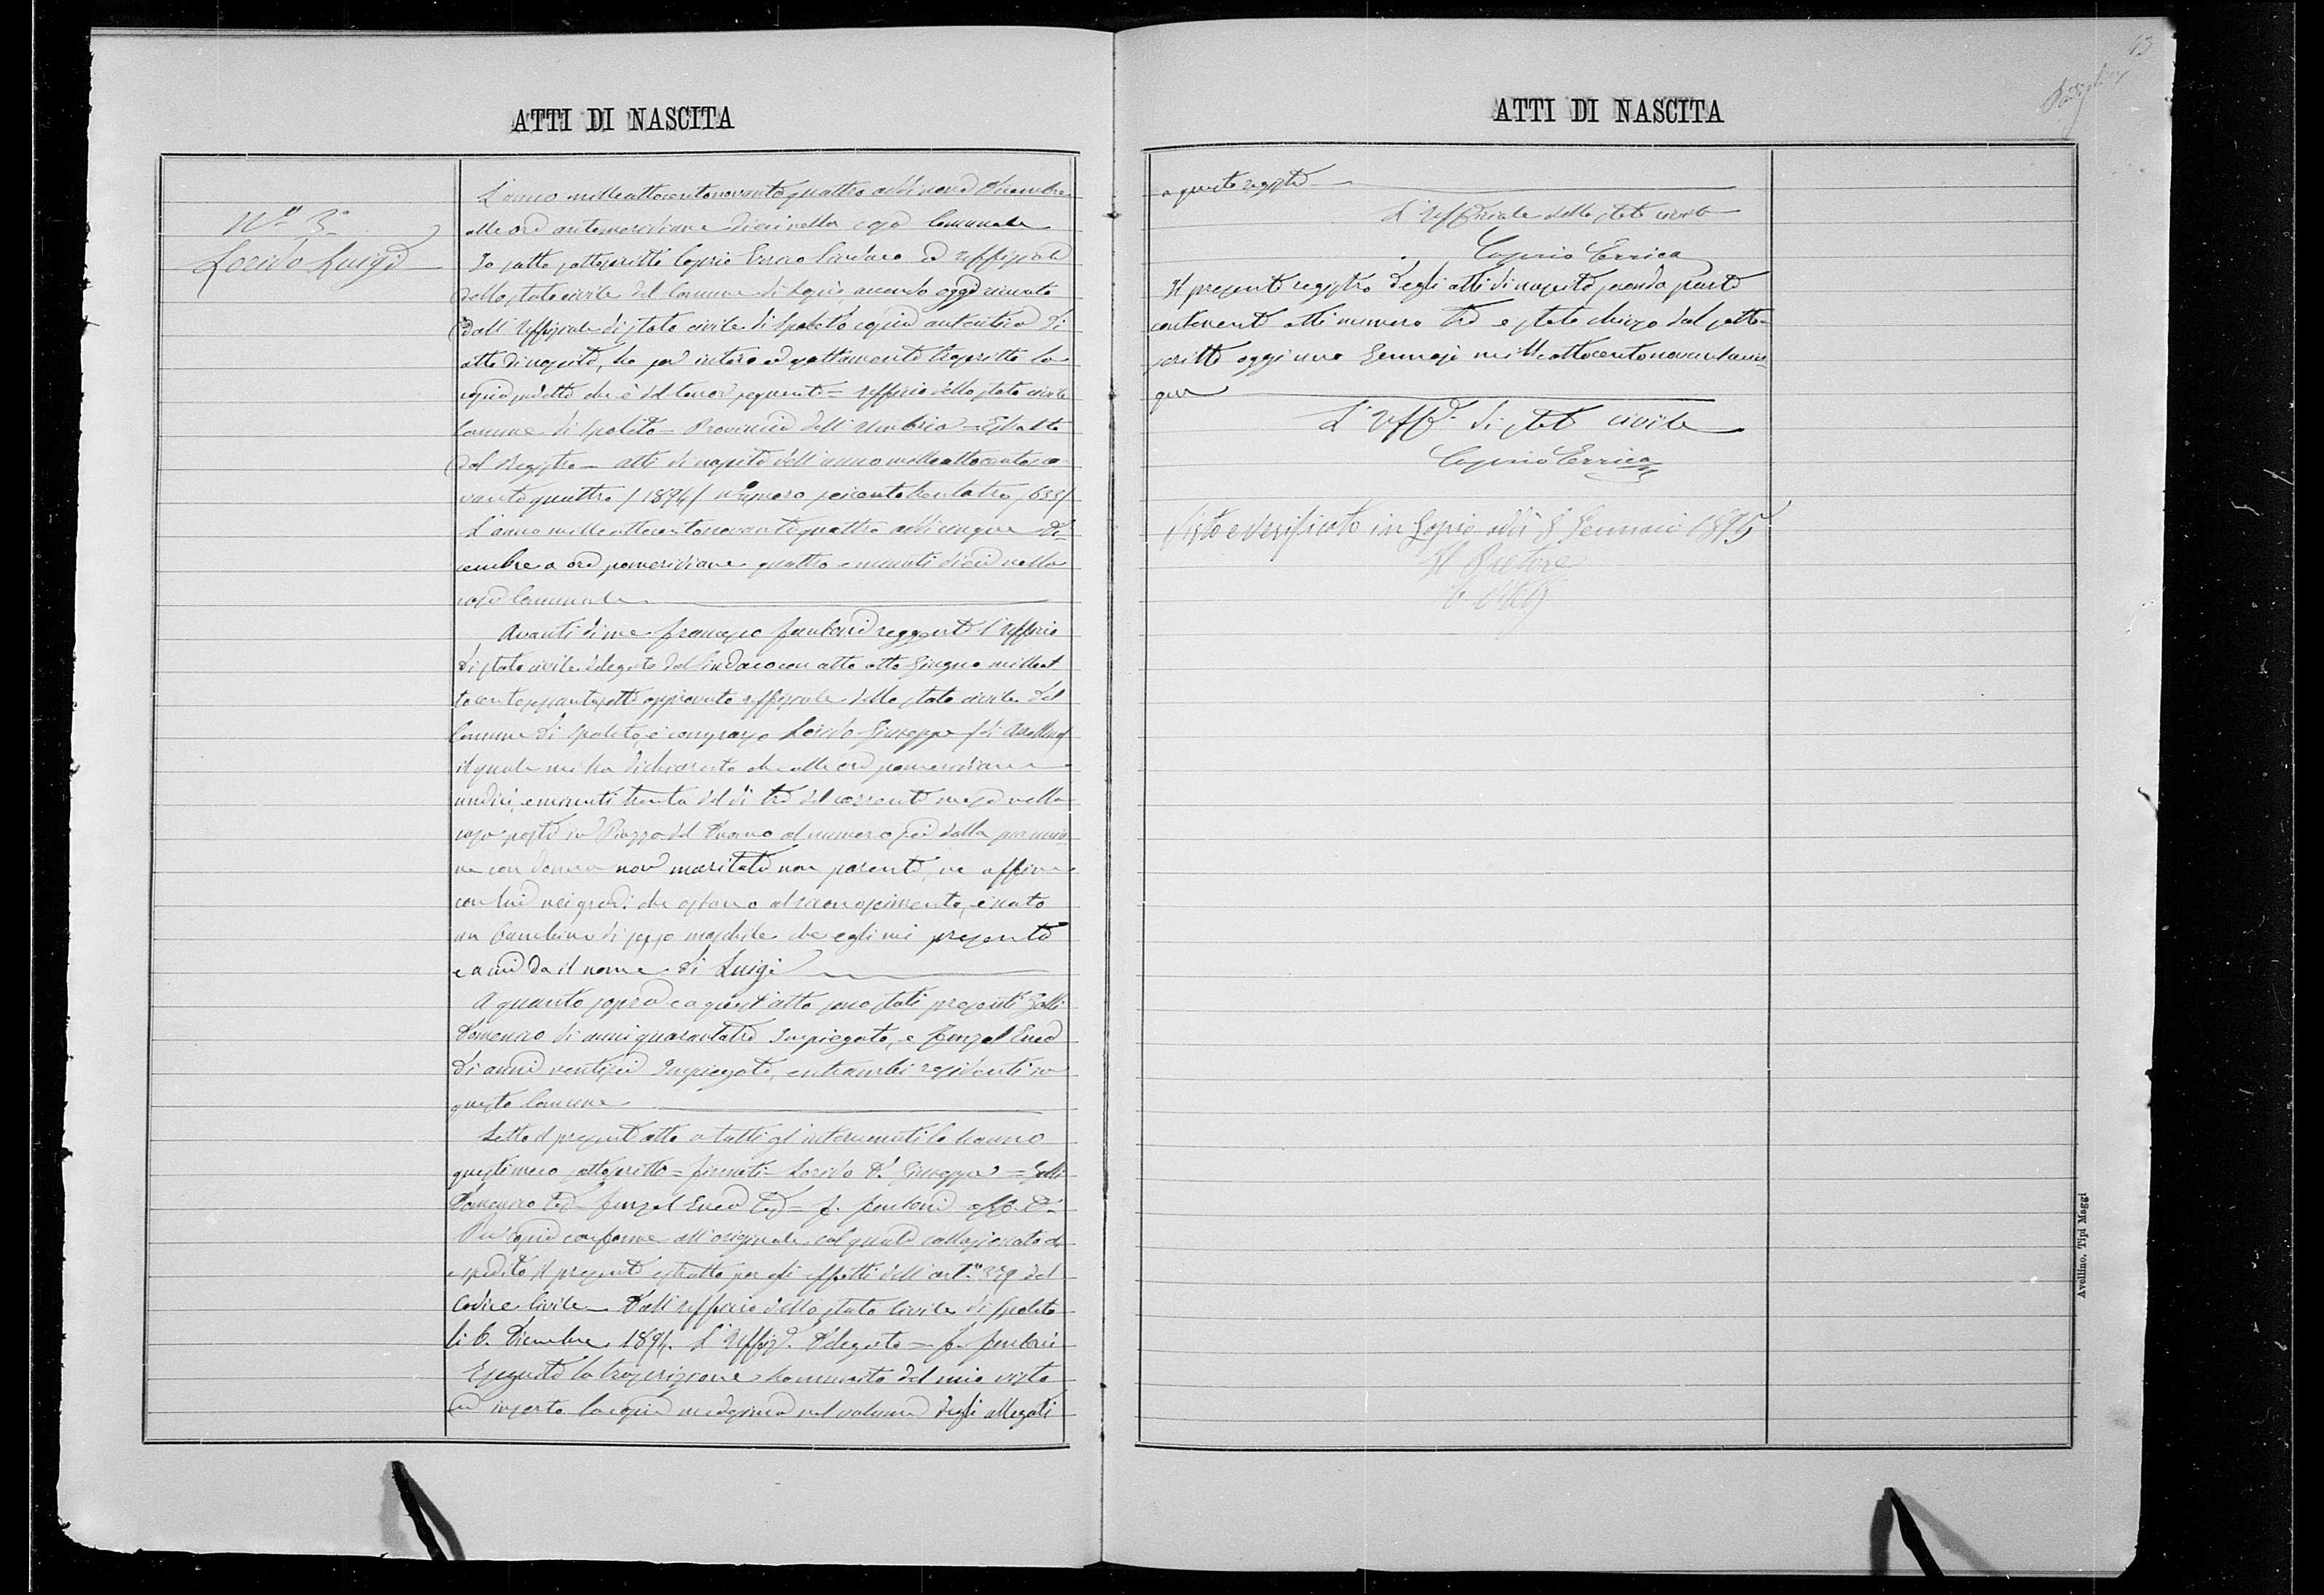 ATTI DI NASCITA
Nº 3º
Locido Luigi
L'anno milleottocentonovantaquattro addì nove Dicembre
alle ore antimeridiane dieci nella casa Comunale
Io sottosottoscritto Caprio Errico Sindaco ed Uffiziale
dello stato civile del Comune di Lapio, avendo oggi ricevuto
dall'Uffiziale di stato civile di Spoleto copia autentica di
atto di nascita, ho per intero ed esattamente trascritto la
copia suddetta che è del tenor seguente = Uffizio dello stato civile
Comune di Spoleto - Provincia dell'Umbria = Estratto
dal Registro - atti di nascita dell'anno milleottocentono-
vantaquattro /1894/ numero seicentotrentatre /633/
L'anno milleottocentonovantaquattro addì cinque Di=
cembre a ore pomeridiane quattro e minuti dieci nella
casa Comunale
Avanti di me Francesco Fantoni reggente l'Uffizio
di stato civile delegato dal Sindaco con atto otto Giugno milleot
tocentosessantasette approvato uffiziale dello stato civile del
Comune di Spoleto, è comparso Locido Giuseppe /di Avellino/
il quale mi ha dichiarato che alle ore pomeridiane
undici e minuti trenta del dì tre del corrente mese nella
casa posta in Piazza del Duomo al numero sei dalla sua unio
ne con donna non maritata non parente, ne affine
con lui nei gradi che ostano al riconoscimento, è nato
un bambino di sesso maschile che egli mi presenta
e a cui da il nome di Luigi
A quanto sopra e a quest'atto sono stati presenti Galli
Domenico di anni quarantatre Impiegato, e Fenzel Enea
di anni ventisei Impiegato, entrambi residenti in
questo Comune
Letto il presente atto a tutti gl'intervenuti lo hanno
questi meco sottoscritto = firmati - Locido D. Giuseppe = Galli
Domenico Tes = Fenzel Enea Tes = F. Fantoni
Per copia conforme all'originale col quale collazionato si
spedito il presente estratto per gli effetti dell'art. del
Codice Civile - Dall'Uffizio dello stato Civile di Spoleto
li 6. Dicembre 1894. L'Uffiz. Delegato = F. Fantoni
Eseguita la trascrizione ho munito del mio visto
ed inserto la copia medesima nel volume degli allegati
ATTI DI NASCITA
13
a questo registro
L'Uffiziale dello stato civile
Caprio Errico
Il presente registro degli atti di nascita seconda parte
contenente atti numero tre è stato chiuso dal sotto-
scritto oggi uno Gennajo milleottocentonovantacin=
que
L'Uff. di stato civile
Caprio Errico
Visto e verificato in Lapio addì 8 Gennaio 1895
Il Pretore
Avellino. Tipi Maggi